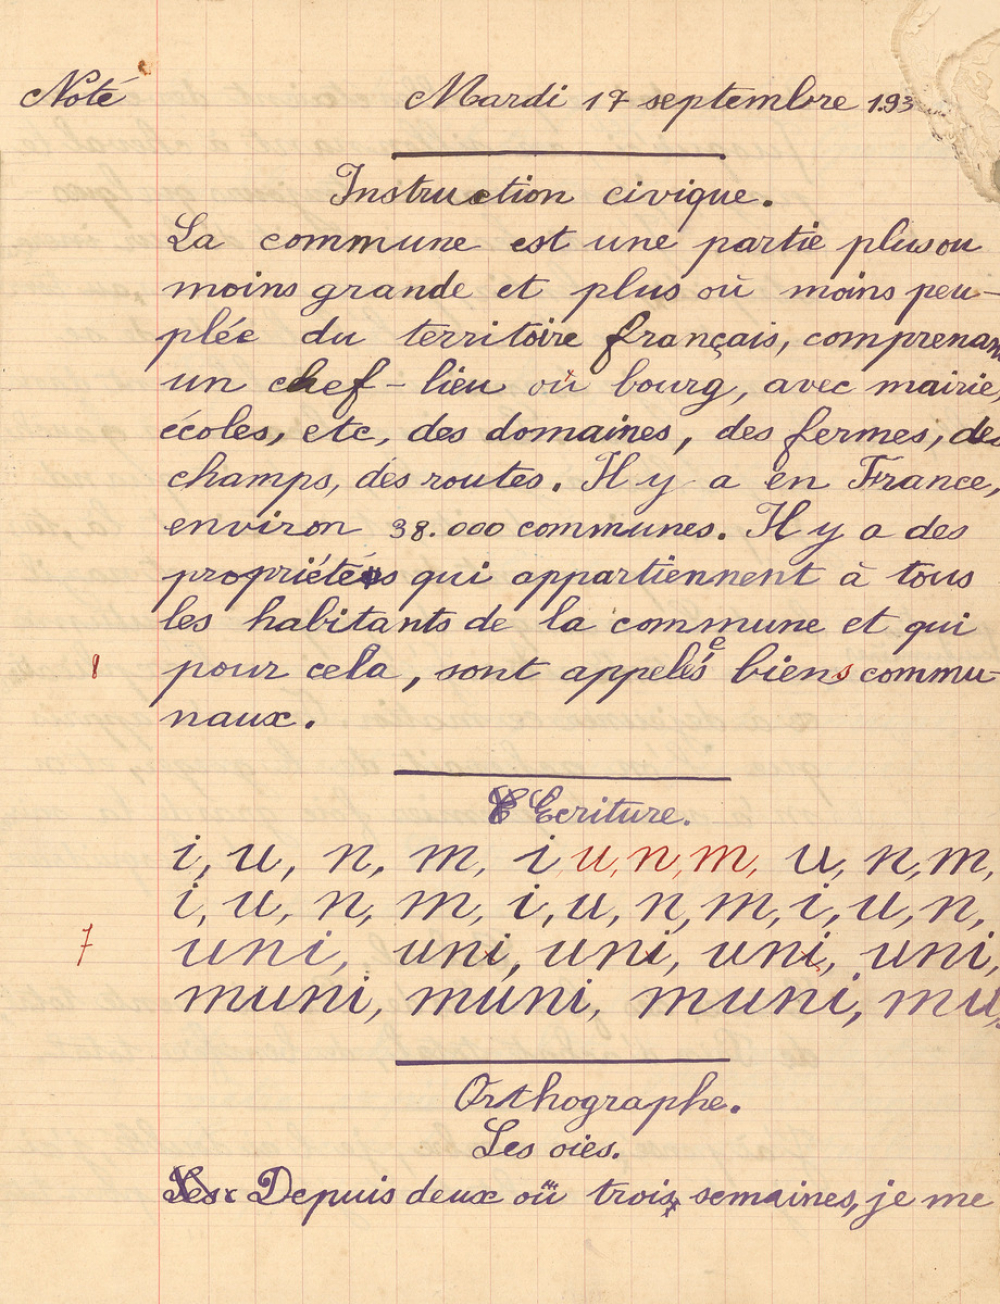 Noté
Mardi 17 septembre 193
Instruction civique.
La commune est une partie plus ou
moins grande et plus où moins peu-
plée du territoire français, comprenant
un chef-lieu où bourg, avec mairie,
écoles, etc, des domaines, des fermes, des
champs, des routes. Il y a en France,
environ 38.000 communes. Il y a des
propriétés qui appartiennent à tous
les habitants de la commune et qui
1
pour cela, sont appelés biens commu-
naux.
Ecriture.
i, u, n, m, i u, n, m, u, n, m,
i, u, n, m, i, u, n, m, i, u, n,
7
uni, uni, uni, uni, uni,
muni, muni, muni, mu
Orthographe.
Les oies.
Les Depuis deux où trois semaines, je me